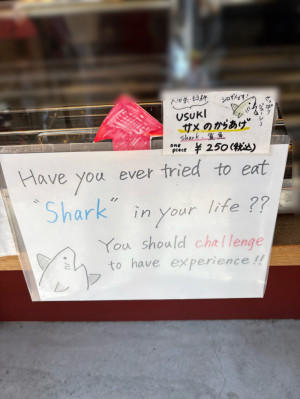 USUKI
サメのからあげ
shark
one piece ¥250(税込)
Have you ever tried to eat
"Shark" in your life ??
You should challenge
to have experience!!